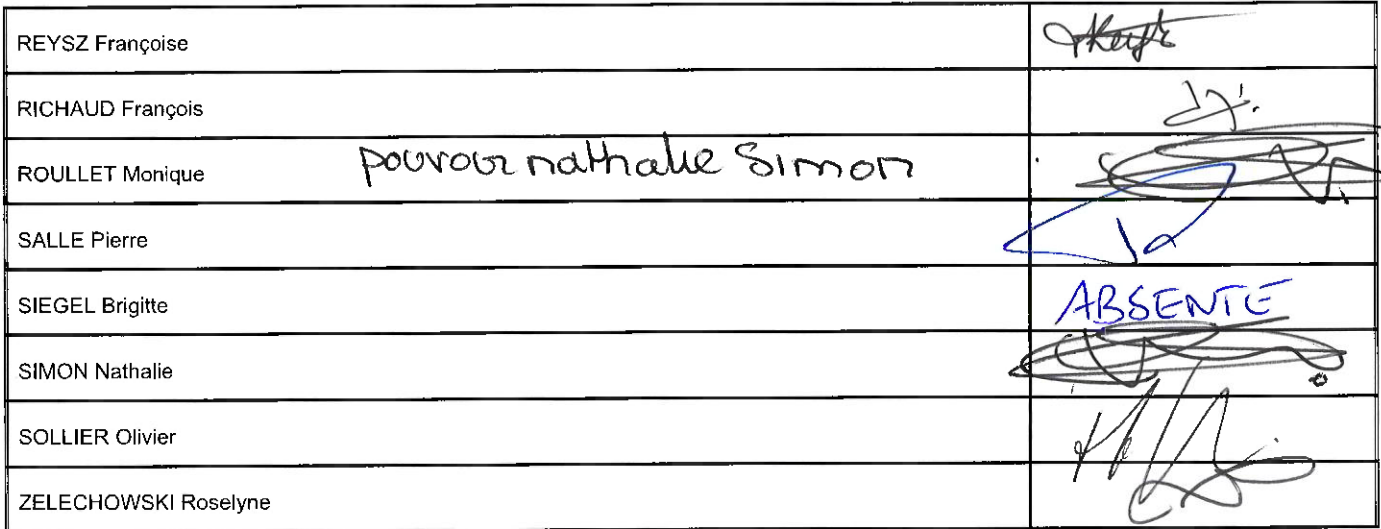 REYSZ Françoise
RICHAUD François
ROULLET Monique pouvoir nathalie Simon
SALLE Pierre
SIEGEL Brigitte ABSENTE
SIMON Nathalie
SOLLIER Olivier
ZELECHOWSKI Roselyne